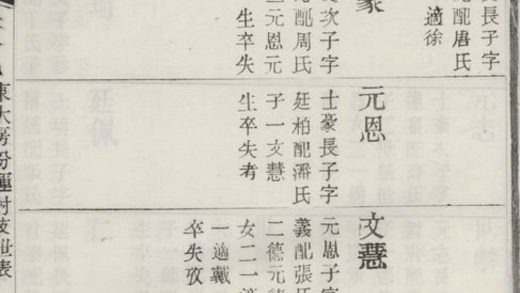 長子字
配唐氏
適徐
豪
次子字
配周氏
元恩元
生卒失
元恩
士豪長子字
廷柏配潘氏
子一文慧
生卒失考
文慧
元恩子字
義配張氏
二德元
女二一適
一適戴
卒失攷
東大房份運村技世表